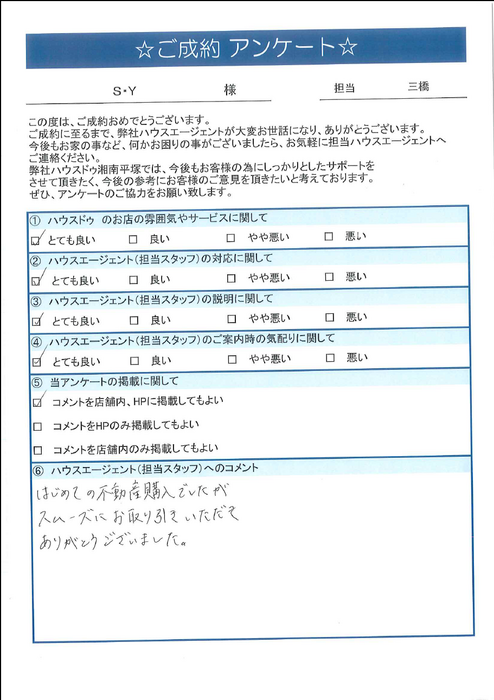 ☆ご成約 アンケート☆
S・Y 様 担当 三橋
この度は、ご成約おめでとうございます。
ご成約に至るまで、弊社ハウスエージェントが大変お世話になり、ありがとうございます。
今後もお家の事など、何かお困りの事がございましたら、お気軽に担当ハウスエージェントへ
ご連絡ください。
弊社ハウスドゥ湘南平塚では、今後もお客様の為にしっかりとしたサポートを
させて頂きたく、今後の参考にお客様のご意見を頂きたいと考えております。
ぜひ、アンケートのご協力をお願い致します。
① ハウスドゥ のお店の雰囲気やサービスに関して
☑ とても良い □ 良い □ やや悪い □ 悪い
② ハウスエージェント(担当スタッフ)の対応に関して
☑ とても良い □ 良い □ やや悪い □ 悪い
③ ハウスエージェント(担当スタッフ)の説明に関して
☑ とても良い □ 良い □ やや悪い □ 悪い
④ ハウスエージェント(担当スタッフ)のご案内時の気配りに関して
☑ とても良い □ 良い □ やや悪い □ 悪い
⑤ 当アンケートの掲載に関して
☑ コメントを店舗内、HPに掲載してもよい
□ コメントをHPのみ掲載してもよい
□ コメントを店舗内のみ掲載してもよい
⑥ ハウスエージェント(担当スタッフ)へのコメント
はじめての不動産購入でしたが
スムーズにお取り引きいただきて
ありがとうございました。